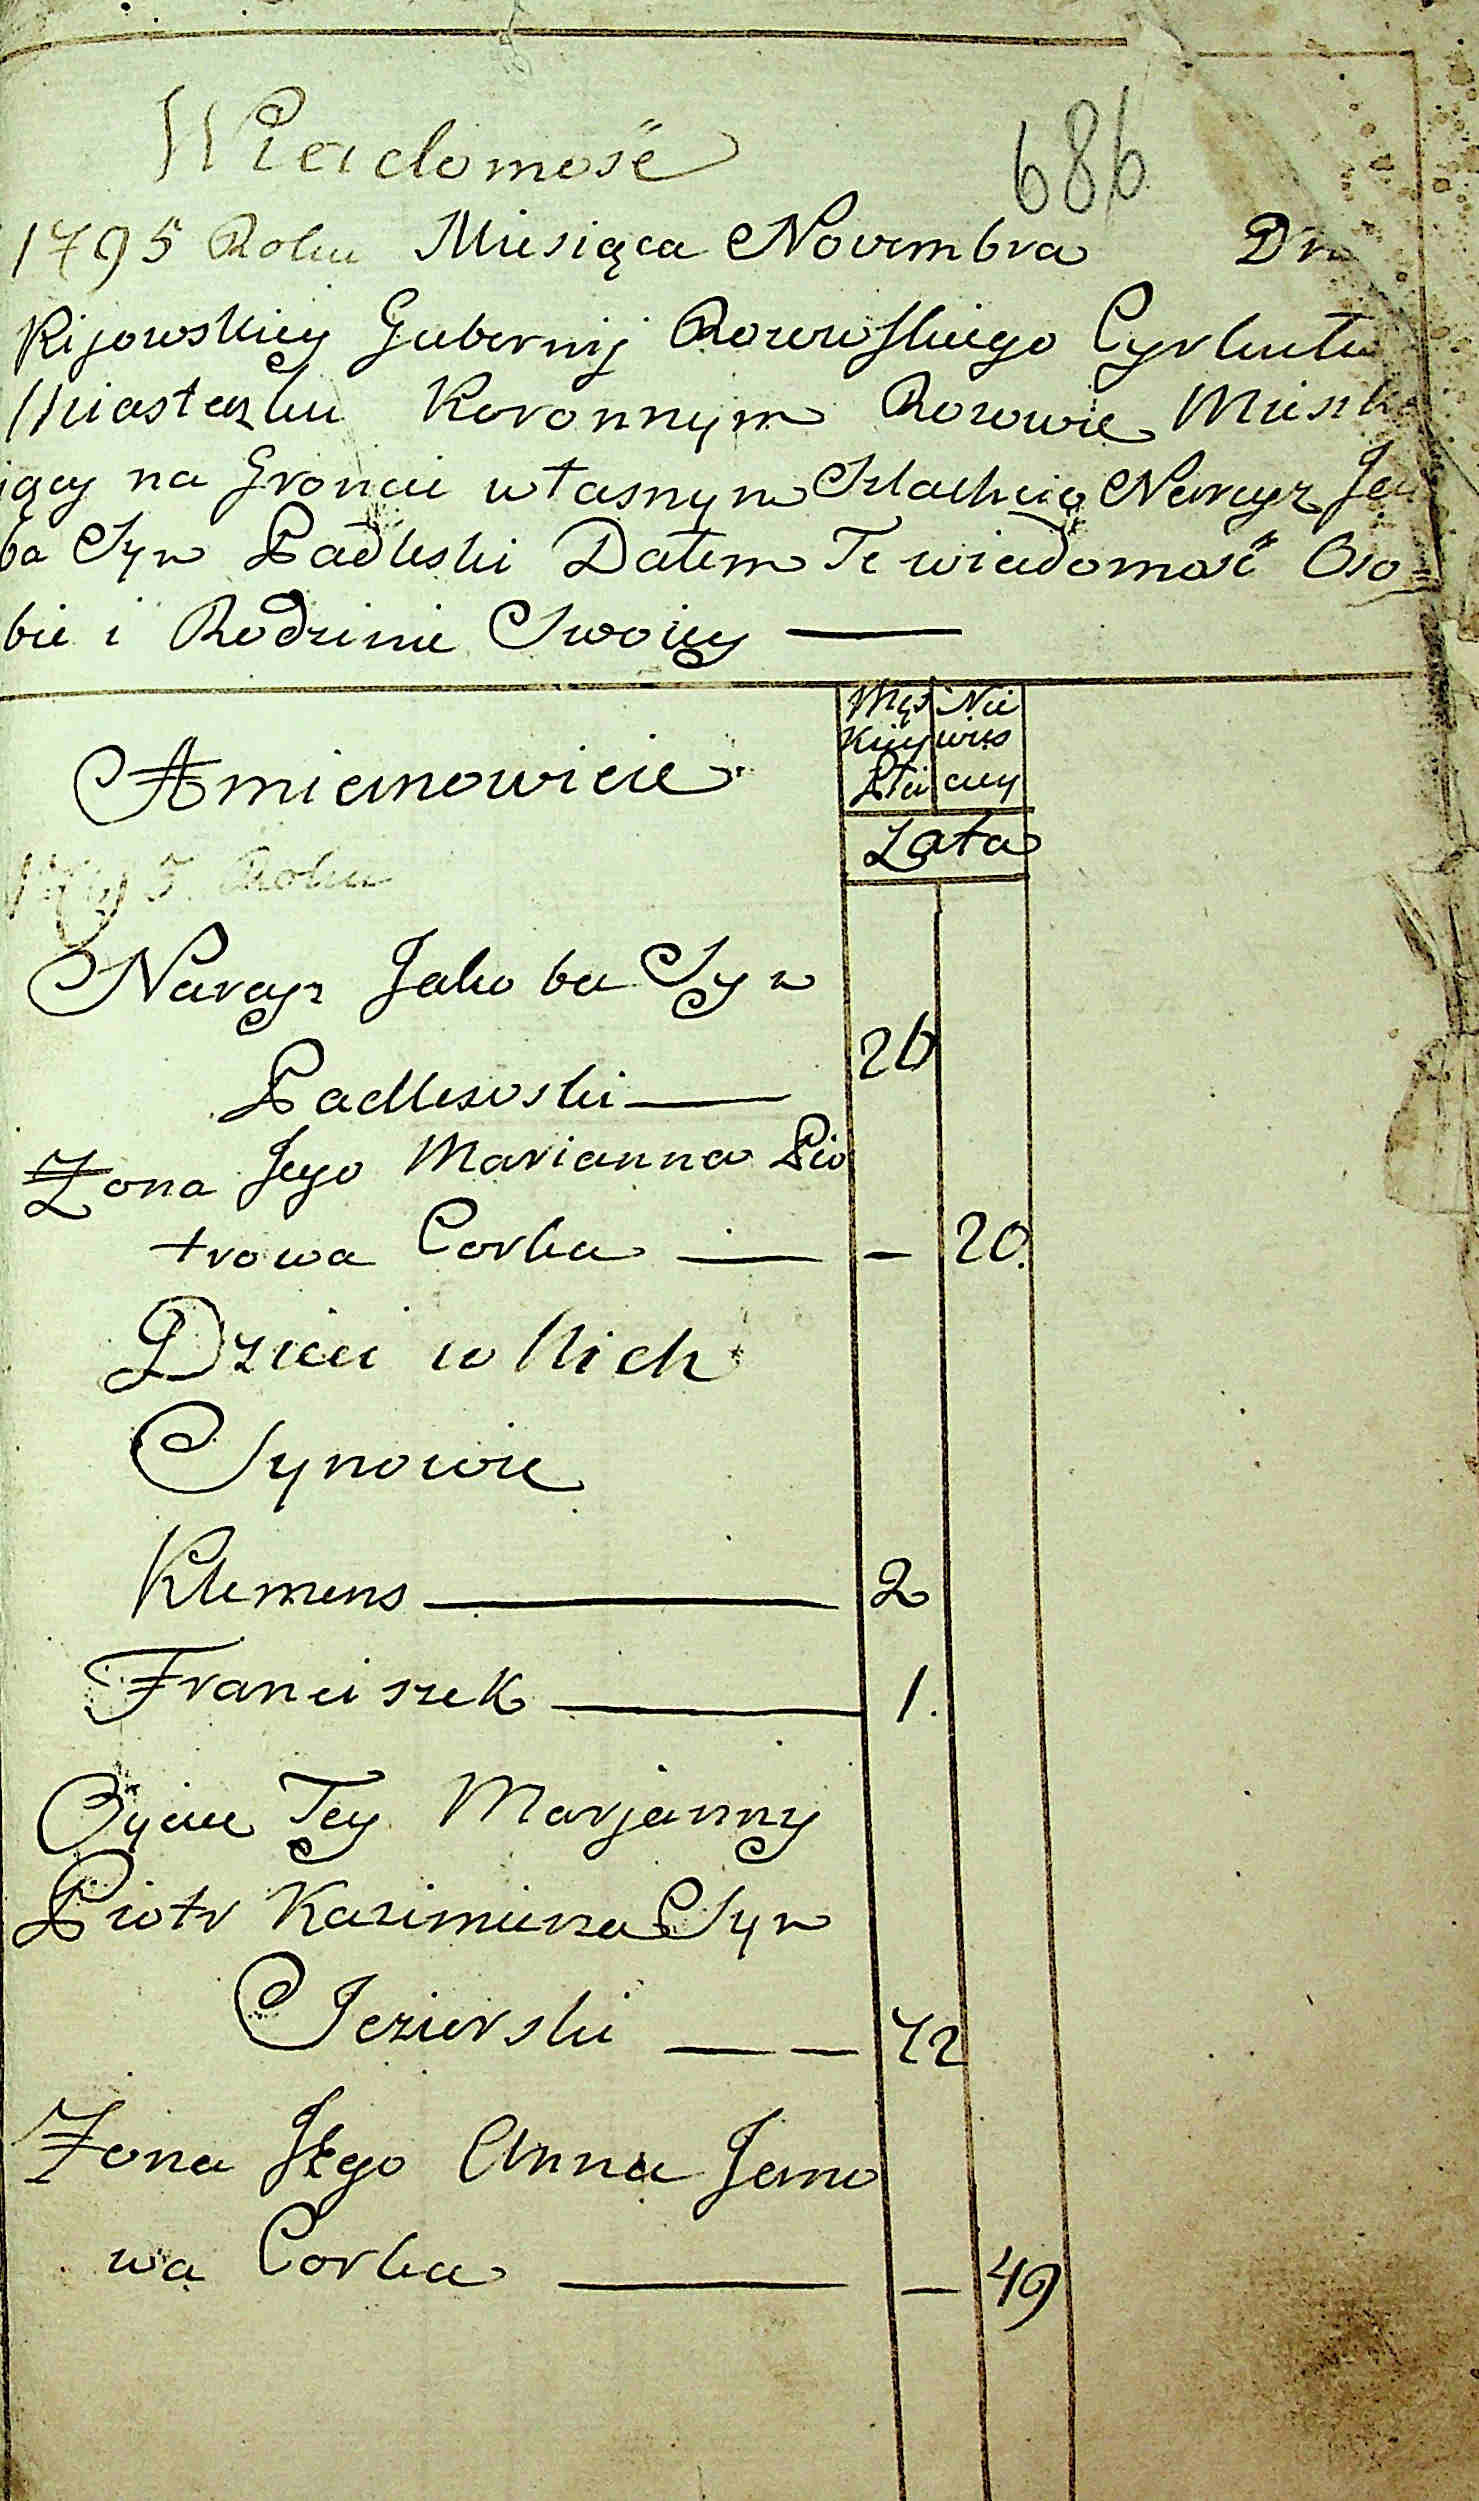 Wiadomość
686
1795 Roku Miesiąca Novembra Dn
Kijowskiey Gubernij Rozowskiego Cyrkułu
Miasteczku Koronnym Rozowie Mieszka
iący na Gruncie własnym Szlachcic Naray Jaku
ba Syn Padleski Dałem Te wiadomość Oso=
bie i Rodzinie Swoiey
Męs Nie
Kiey wies
Płci ciey
Amianowicie
Lata
1795 Roku
Narayz Jakoba Syn
Padlewski 26
Żona Jego Marianna Pio
trowa Corka — 20.
Dzieci w Nich
Synowie
Klemens 2
Franciszek 1.
Oyciec Tey Marjanny
Piotr Kazimierza Syn
Jezierski 72
Żona Jego Anna Jano
wa Corka — 49